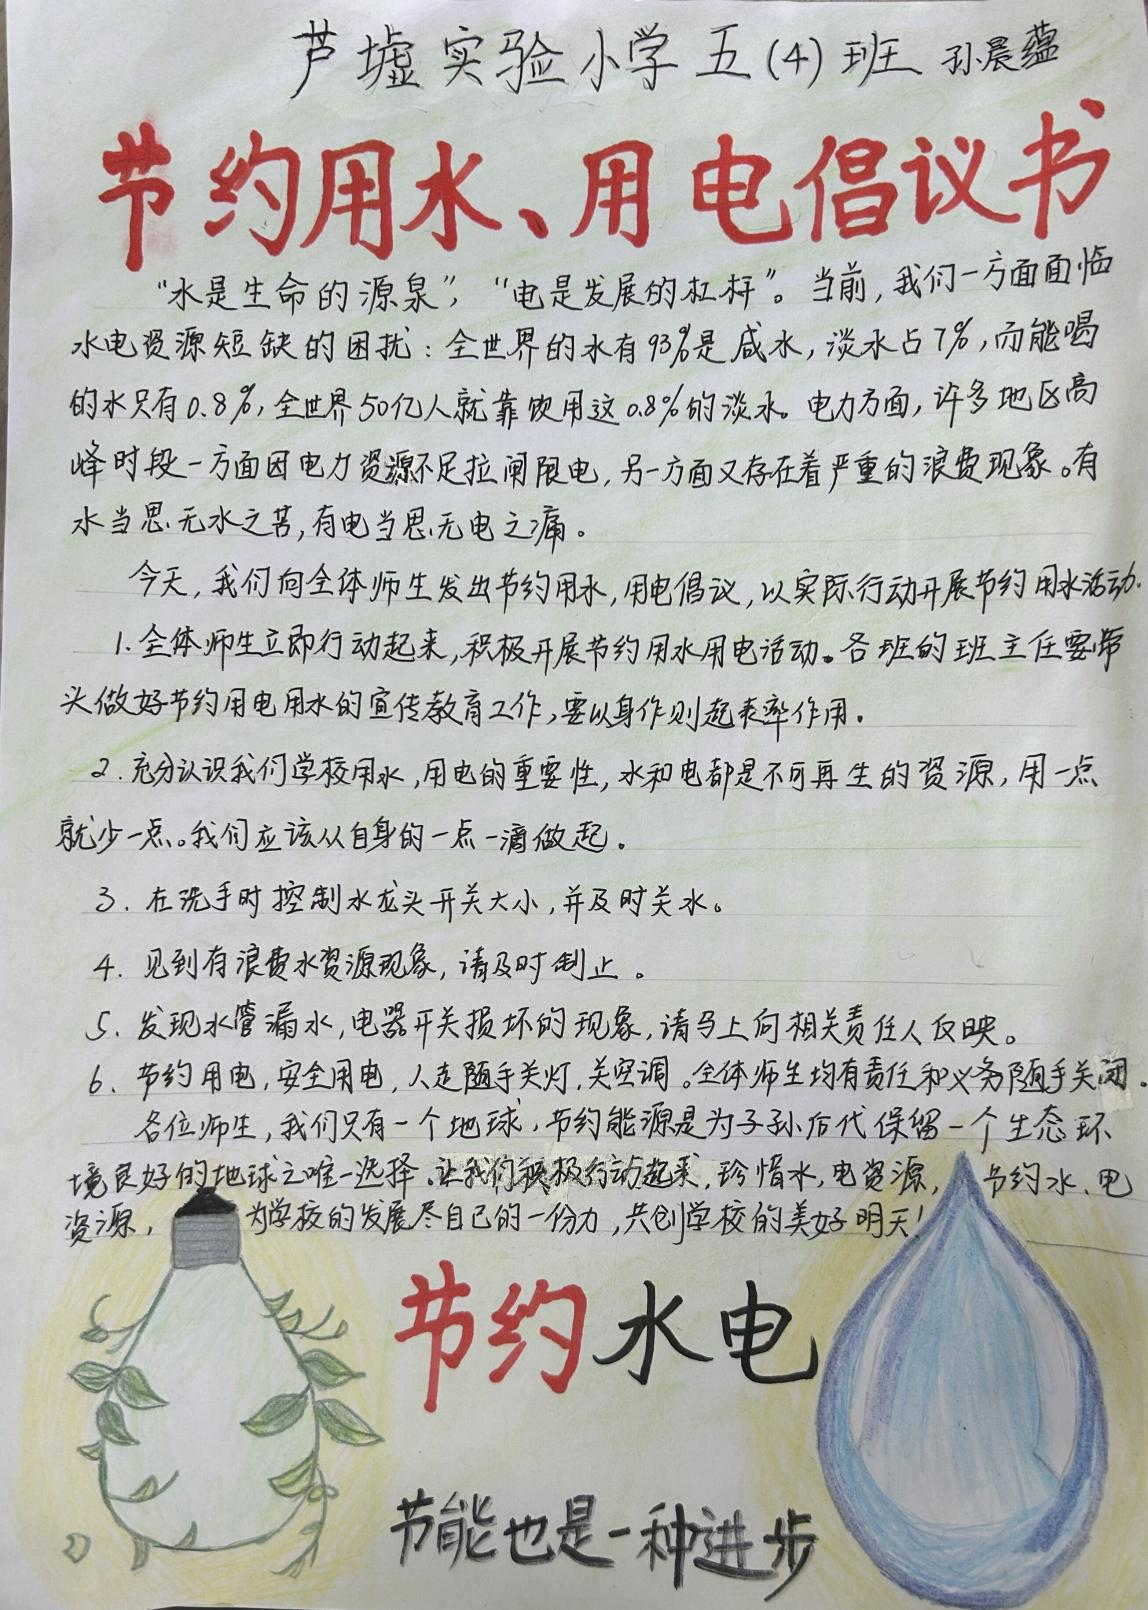 芦墟实验小学五(4)班 孙晨蕴
节约用水、用电倡议书
“水是生命的源泉”，“电是发展的杠杆”。当前，我们一方面面临
水电资源短缺的困扰：全世界的水有93%是咸水，淡水占7%，而能喝
的水只有0.8%，全世界50亿人就靠饮用这0.8%的淡水。电力方面，许多地区高
峰时段一方面因电力资源不足拉闸限电，另一方面又存在着严重的浪费现象。有
水当思无水之苦，有电当思无电之痛。
今天，我们向全体师生发出节约用水，用电倡议，以实际行动开展节约用水活动.
1.全体师生立即行动起来，积极开展节约用水用电活动。各班的班主任要带
头做好节约用电用水的宣传教育工作，要以身作则起表率作用。
2.充分认识我们学校用水，用电的重要性，水和电都是不可再生的资源，用一点
就少一点。我们应该从自身的一点一滴做起。
3.在洗手时控制水龙头开关大小，并及时关水。
4.见到有浪费水资源现象，请及时制止。
5.发现水管漏水，电器开关损坏的现象，请马上向相关责任人反映。
6.节约用电，安全用电，人走随手关灯，关空调。全体师生均有责任和义务随手关闭.
各位师生，我们只有一个地球，节约能源是为子孙后代保留一个生态环
境良好的地球之唯一选择.让我们积极行动起来，珍惜水，电资源，节约水、电
资源，为学校的发展尽自己的一份力，共创学校的美好明天！
节约水电
节能也是一种进步